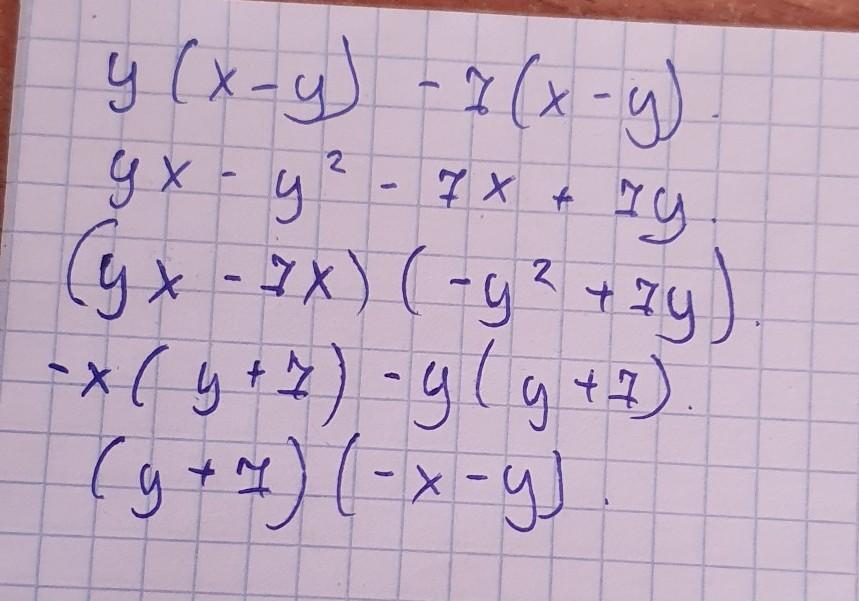 y(x-y) - 7(x-y).
yx - y² - 7x + 7y.
(yx - 7x)(-y² + 7y).
-x(y+7) - y(y+7).
(y+7)(-x-y).